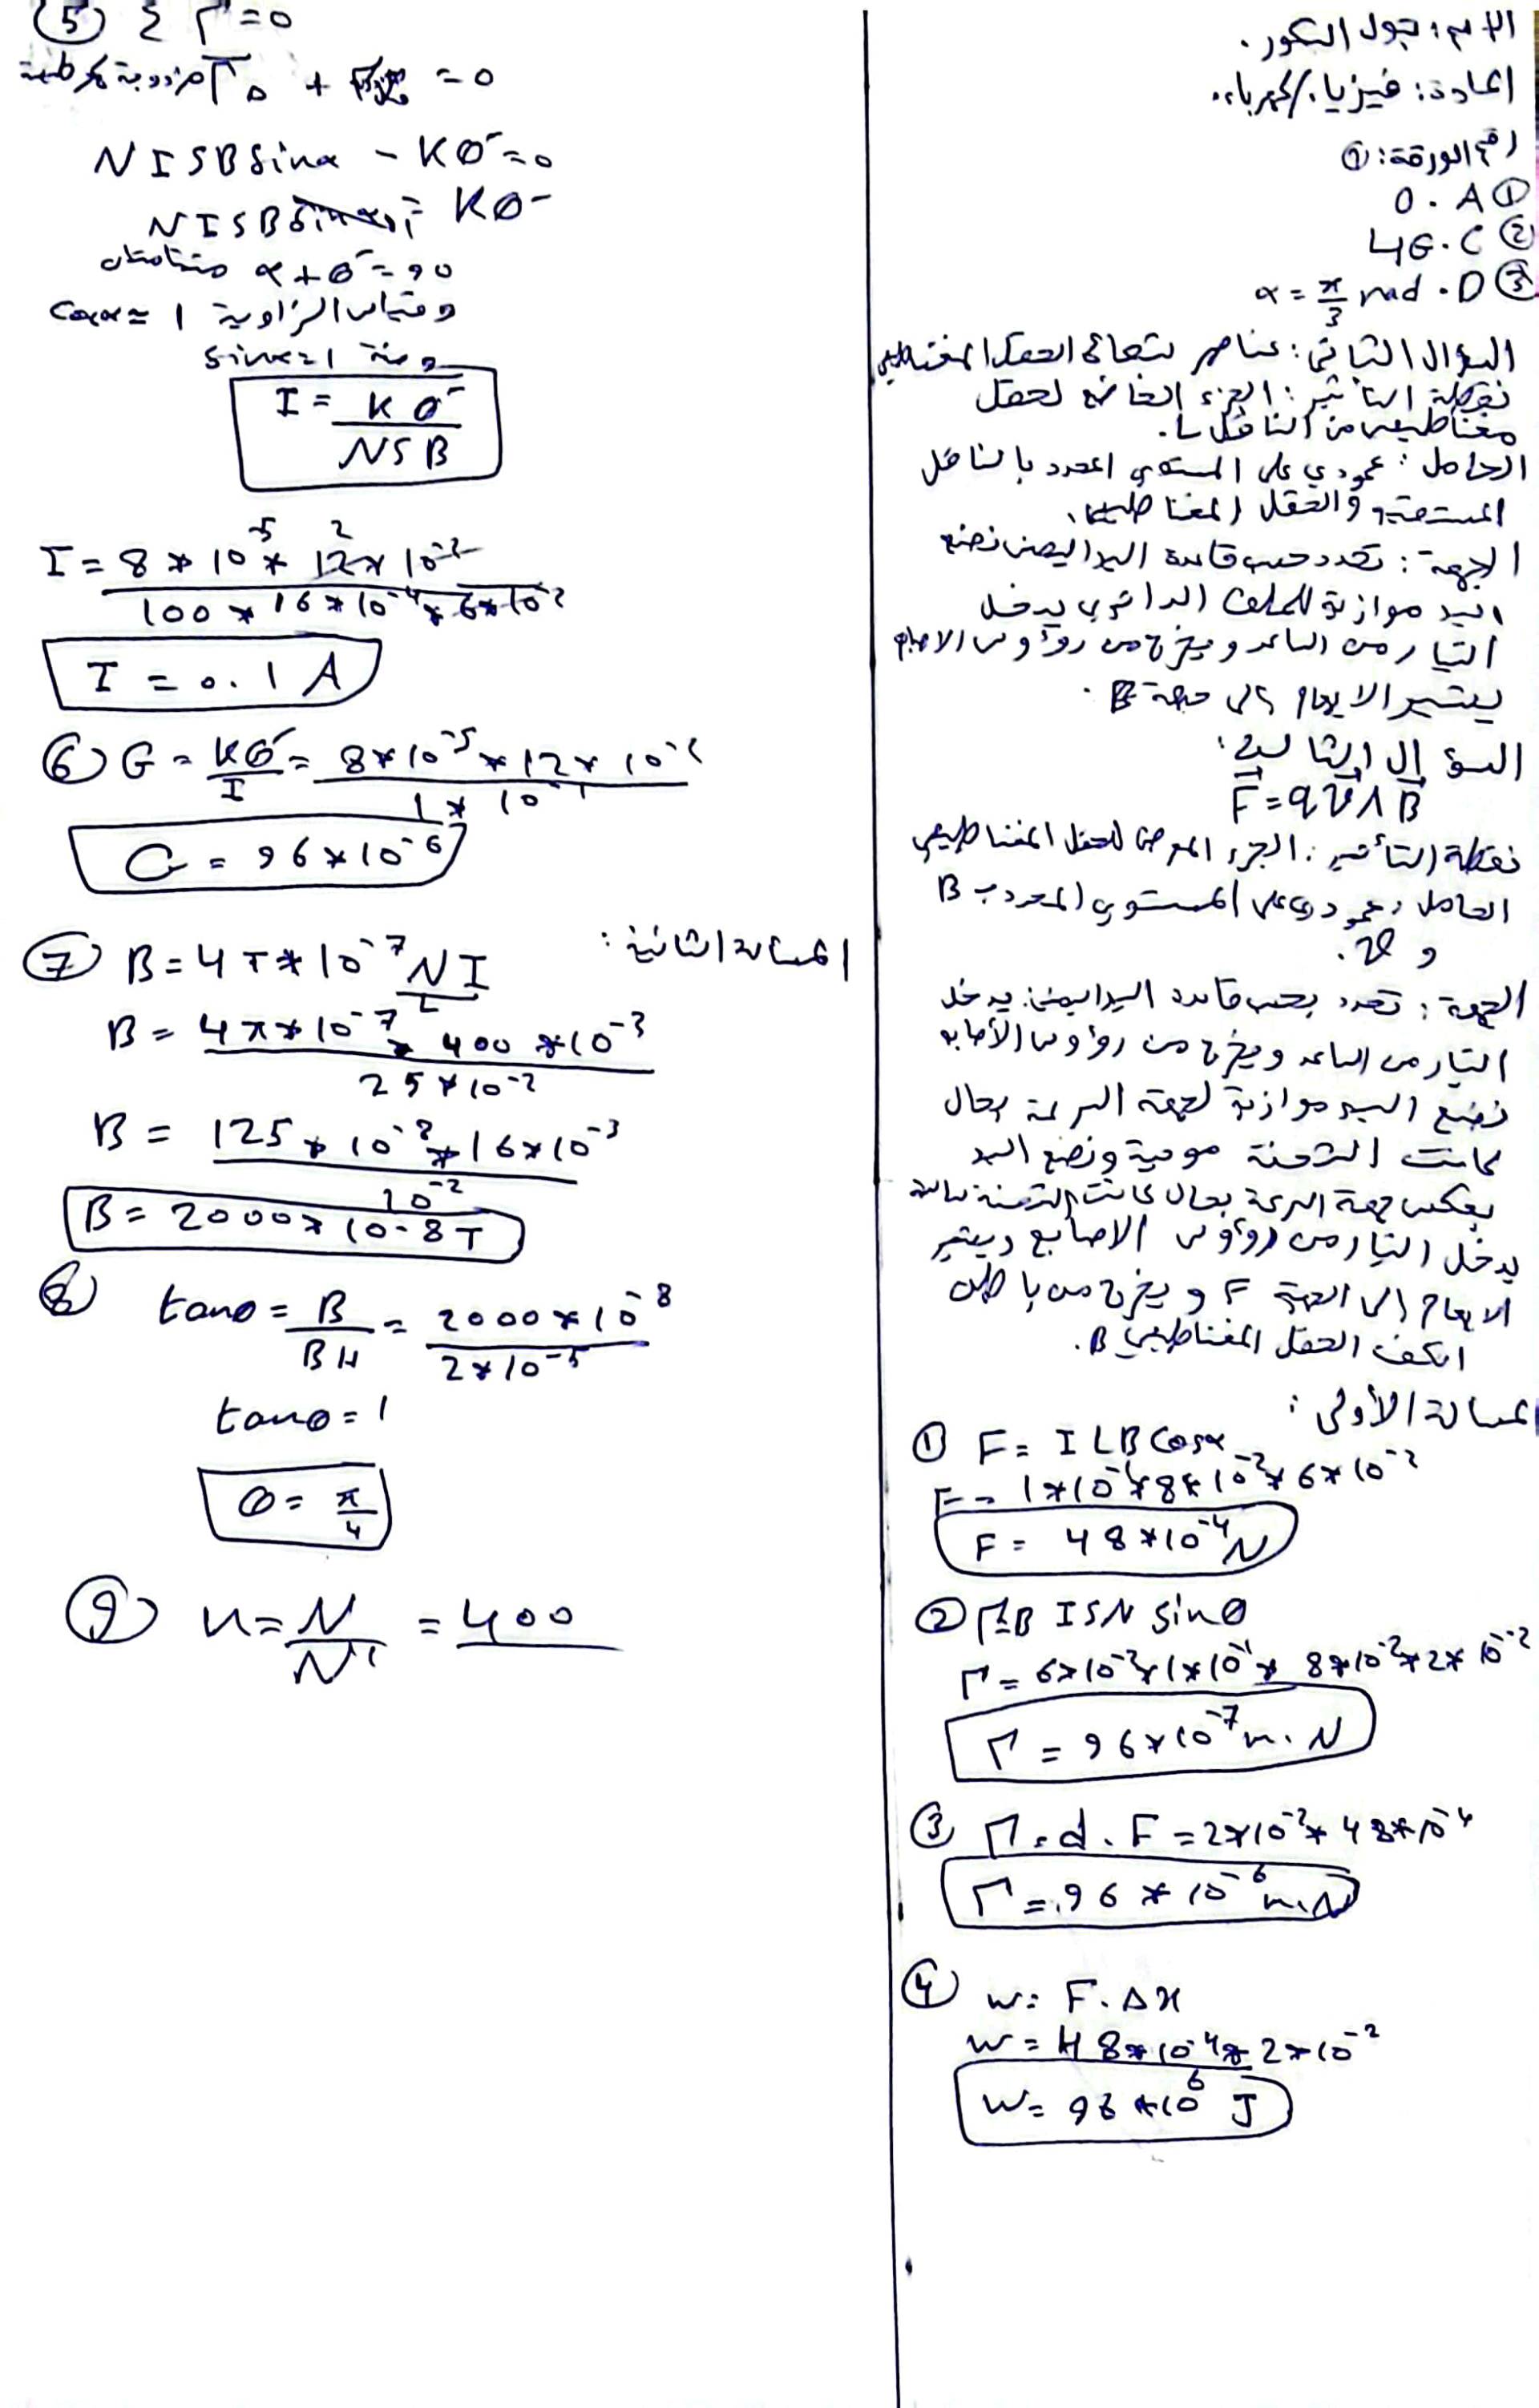 الاسم: جول النكور.
المادة: فيزياء/كهرباء.
رقم الورقة: ①
① O . A
② 4G . C
③ α = π/3 rad . D
السؤال الثاني: عناصر شعاع الحقل المغناطيسي
نقطة التأثير: الجزء الخاضع لحقل
مغناطيسي من الناقل L.
الحامل: عمودي على المستوي المحدد بالناقل
المستقيم والحقل المغناطيسي.
الجهة: تحدد حسب قاعدة اليد اليمنى نضع
اليد موازية للملف الدائري يدخل
التيار من الساعد ويخرج من رؤوس الاصابع
يشير الابهام الى جهة B.
السؤال الثالث:
F = q v Λ B
نقطة التأثير: الجزء المعرض للحقل المغناطيسي
الحامل: عمودي على المستوي المحدد ب B
و v.
الجهة: تحدد بحسب قاعدة اليد اليمنى: يدخل
التيار من الساعد ويخرج من رؤوس الأصابع
نضع اليد موازية لجهة السرعة بحال
كانت الشحنة موجبة ونضع اليد
بعكس جهة السرعة بحال كانت الشحنة سالبة
يدخل التيار من رؤوس الاصابع ويشير
الابهام الى الجهة F و يخرج من باطن
الكف الحقل المغناطيسي B.
المسألة الأولى:
① F = I L B Cosα
F = 1*10^-1 * 8*10^-2 * 6*10^-2
F = 48*10^-4 N
② Γ = B I S N sin θ
Γ = 6*10^-2 * 1*10^-1 * 8*10^-2 * 2*10^-2
Γ = 96*10^-7 m.N
③ Γ = d . F = 2*10^-2 * 48*10^-4
Γ = 96*10^-6 m.N
④ W = F . Δx
W = 48*10^-4 * 2*10^-2
W = 96*10^6 J
⑤ Σ Γ = 0
Γ مزدوجة كهرطيسية + = 0
N I S B sin α - Kθ' = 0
N I S B sin α = Kθ'
α + θ' = 90 متتامتان
وقياس الزاوية Cosα ≈ 1
ومنه sin α = 1
I = Kθ' / NSB
I = 8*10^-5 * 12*10^-2 / 100 * 16*10^-4 * 6*10^-2
I = 0.1 A
⑥ G = Kθ' / I = 8*10^-5 * 12*10^-2 / 1*10^-1
G = 96*10^-6
المسألة الثانية:
⑦ B = 4π*10^-7 NI / L
B = 4π*10^-7 * 400*10^-3 / 25*10^-2
B = 125*10^-8 * 16*10^-3 / 10^-2
B = 2000*10^-8 T
⑧ tanθ = B / BH = 2000*10^-8 / 2*10^-5
tanθ = 1
θ = π/4
⑨ n = N / N' = 400